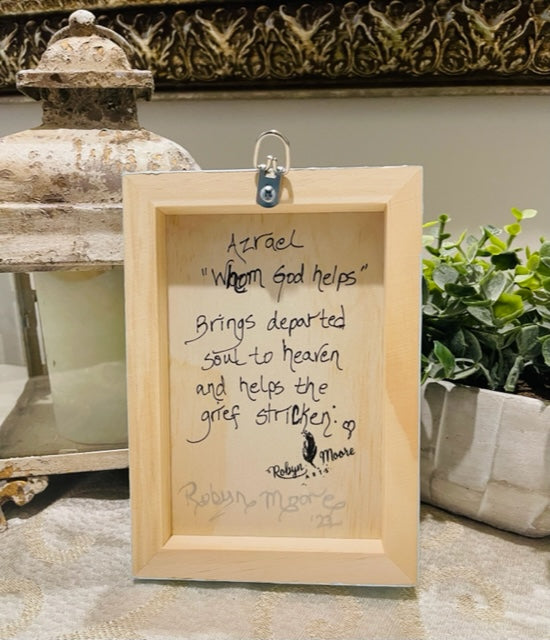 Azrael
"Whom God helps"
Brings departed
soul to heaven
and helps the
grief stricken.
Robyn Moore
ARTS
Robyn Moore
'22